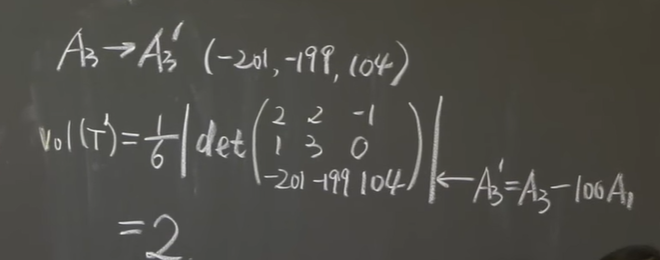 A₃→A₃' (-201, -199, 104)
Vol(T') = 1/6 |det(2 2 -1
1 3 0
-201 -199 104)| ← A₃' = A₃ - 100A₁
= 2